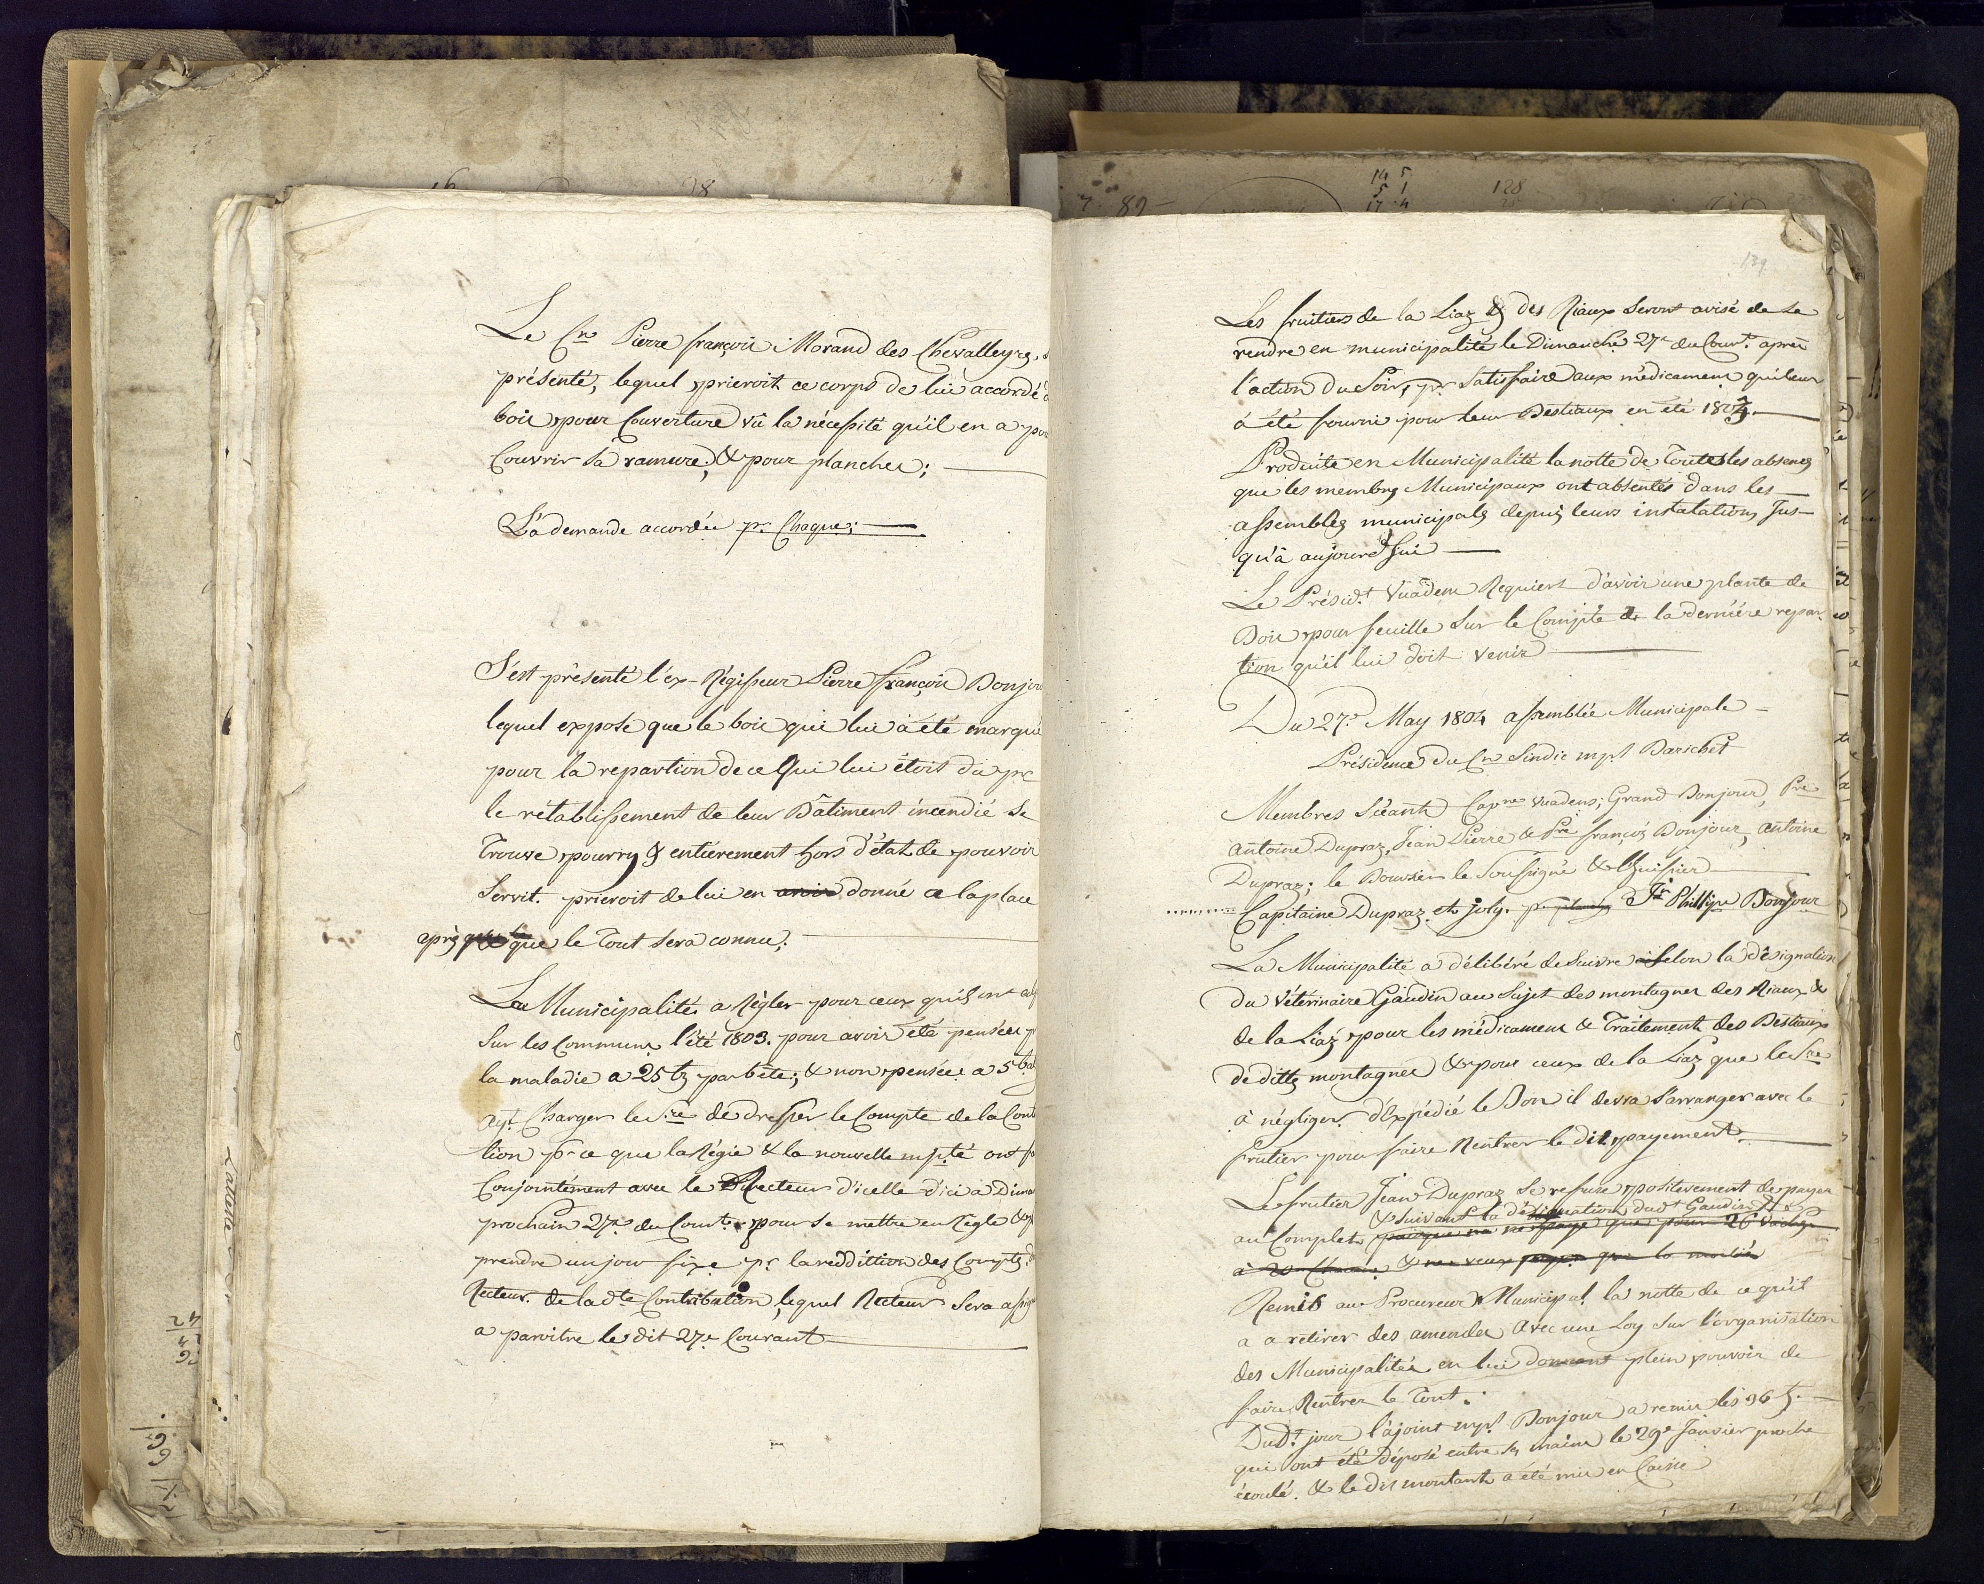 Le Cn Pierre françois Morand des Chevalleyres,
présenté, lequel prieroit ce corps de lui accordé
bois pour Couverture vû la nécessité qu'il en a pour
Couvrir sa ramure; & pour planches;
La demande accordée pr Chaques;
S'est présenté l'ex-Régisseur Pierre françois Bonjour
lequel expposé que le bois qui lui à été marqué
pour la repartion de ce Qui lui étoit du pr
le rétablissement de leur Bâtiment incendié se
Trouve pourry & entiérement hors d'état de pouvoir
servit. prieroit de lui en avoir donné a la place
après que le Tout sera connu;
La Municipalités a Régler pour ceux qu'ils ont
sur les Communs l'été 1803. pour avoir été pensées
la maladie a 25 bz par bête; & non pensées a 5 bz
ayt Charger le Sre de dresser le Compte de la Cont
tion pr ce que la Régie & la nouvelle mpté ont
Conjointément avec le Recteur d'icelle d'ici à Diman
prochain 27e du Court pour se mettre en Règle &
prendre un jour fixe pr la reddittion des Comptes
Recteur de la dte Contribution, lequel Recteur sera assigné
a paroitre le dit 27e Courant
139
Les fruitiers de la Liaz & des Riaux seront avisé de se
rendre en municipalité le Dimanche 27e du Court après
l'action du soir, pr satisfaire aux médicamens qui leur
à été fourni pour leur Bestiaux en été 1803.
Produite en Municipalité la notte de Toutes les absences
que les membres Municipaux ont absentés dans les
assemblés municipals depuis leurs instalations Jus-
qu'à aujourd'hui
Le Présidt Vuadens Requiert d'avoir une plante de
Bois pour feuille sur le Compte de la dernière repar
tion qu'il lui doit venir
Du 27e May 1804 assemblée Municipale
Présidence du Cn Sindic mpl Barichet
Membres Séants Capne Vuadens; Grand Bonjour, Pre
antoine Dupraz, Jean Pierre & Pre françois Bonjour, antoine
Dupraz; le Boursier le Soussigné & l'huissier
Capitaine Dupraz et joly. Jn Phillipe Bonjour
La Municipalité a délibéré de Suivre selon la désignation
du Véterinaire Gaudin au Sujet des montagnes des Riaux &
de la Liaz pour les médicamens & Traitements des Bestiaux
de dittes montagnes & pour ceux de la Liaz que le Sre
à négliger d'Expédié le Bon il devra s'arranger avec le
frutier pour faire Rentrer le dit payement.
Le frutier Jean Dupraz se refuse positivement de payer
& suivant la désignation dudt Gaudin
au Complet
& ne veux payer que la moitié
Remis au Procureur Municipal la notte de ce qu'il
a a retirer des amendes avec une Loy sur l'organisation
des Municipalités en lui donnant plein pouvoir de
faire Rentrer le Tout.
Dudt jour l'ajoint mpl Bonjour a remis les 96
qui ont été déposé entre ses mains le 29e Janvier proche
écoulé. & le dit montant a été mis en Caisse